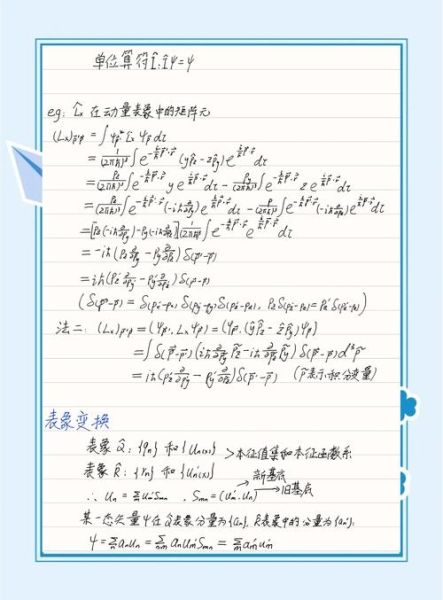 单位算符Î: Îψ=ψ
eg: L̂x 在动量表象中的矩阵元
(Lx)p'p = ∫ψp'* L̂x ψp dτ
= 1/(2πħ)³ ∫e^(-i/ħ p'·r) (yp̂z - zp̂y) e^(i/ħ p·r) dτ
= pz/(2πħ)³ ∫e^(-i/ħ p'·r) y e^(i/ħ p·r) dτ - py/(2πħ)³ ∫e^(-i/ħ p'·r) z e^(i/ħ p·r) dτ
= pz/(2πħ)³ ∫e^(-i/ħ p'·r) (-iħ ∂/∂py) e^(i/ħ p·r) dτ - p/(2πħ)³ ∫e^(-i/ħ p'·r) (-iħ ∂/∂pz) e^(i/ħ p·r) dτ
= [pz(-iħ ∂/∂py) - py(-iħ ∂/∂pz)] 1/(2πħ)³ ∫e^(-i/ħ p'·r) e^(i/ħ p·r) dτ
= -iħ (pz ∂/∂py - py ∂/∂pz) δ(p'-p)
= iħ (pz' ∂/∂py' - py' ∂/∂pz') δ(p'-p)
(δ(p'-p) = δ(px'-px) δ(py'-py) δ(pz'-pz), pz δ(pz'-pz) = pz' δ(pz'-pz))
法二: (Lx)p'p = (ψp', Lx ψp) = (ψp', (ŷp̂z - ẑp̂y) ψp)
= ∫δ(p̃-p') (iħ ∂/∂p̃y p̃z - iħ ∂/∂p̃z p̃y) δ(p̃-p) d³p̃
= iħ (pz' ∂/∂py' - py' ∂/∂pz') δ(p'-p) (p̃表示积分变量)
表象变换
表象 Q̂: {qn} 和 {un(x)} >本征值集和本征函数系
表象 R̂: {rn} 和 {u'n(x)}
→新基底
∴ un = Σm u'm Smn , Smn = (u'm, un) →旧基底
某一态矢量ψ在Q表象分量为{an}, R表象中的分量为{a'n},
ψ = Σn an un = Σmn an u'm Smn = Σm a'm u'm